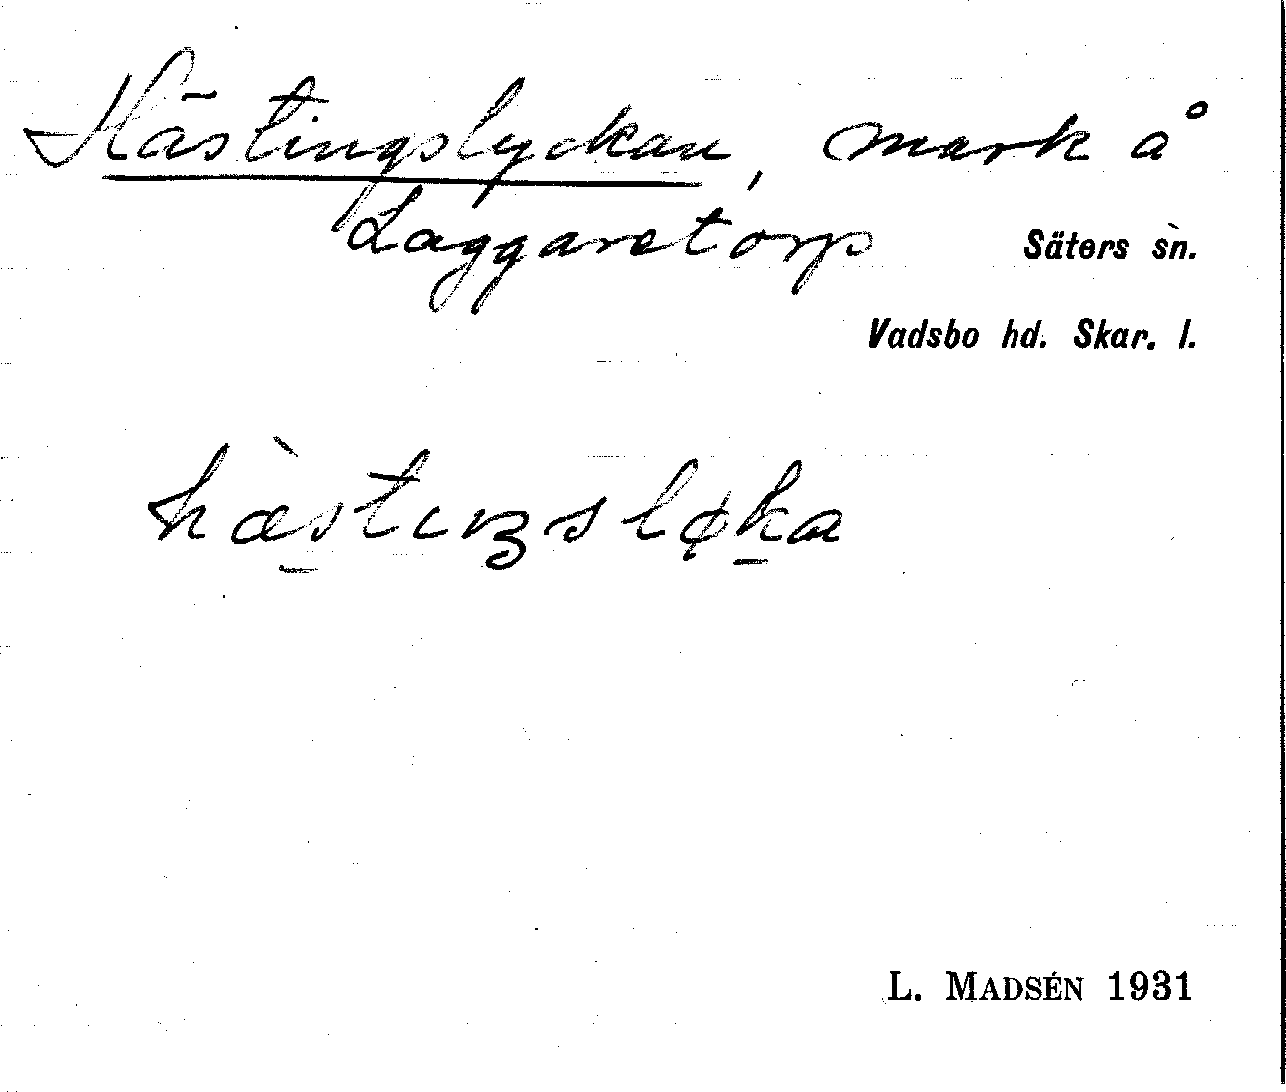 Hästingslyckan, mark å
Laggaretorp
Säters sn.
Vadsbo hd. Skar. l.
hæ̀stıŋsløka
L. MADSÉN 1931